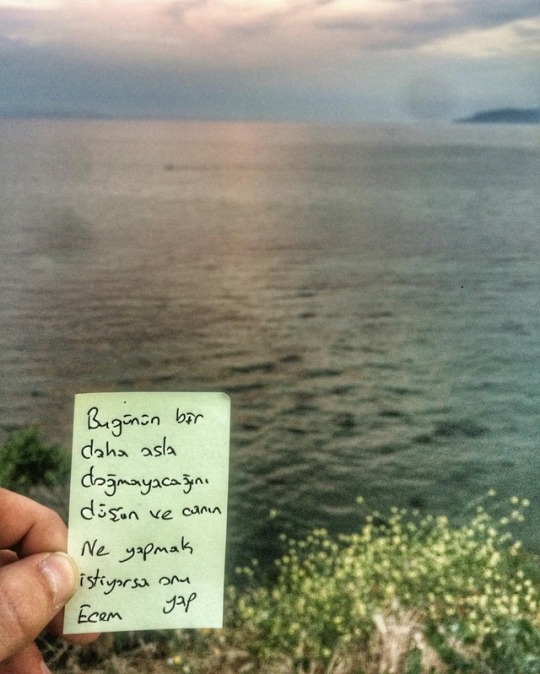 Bugünün bir
daha asla
doğmayacağını
düşün ve canın
Ne yapmak
istiyorsa onu
yap
Ecem